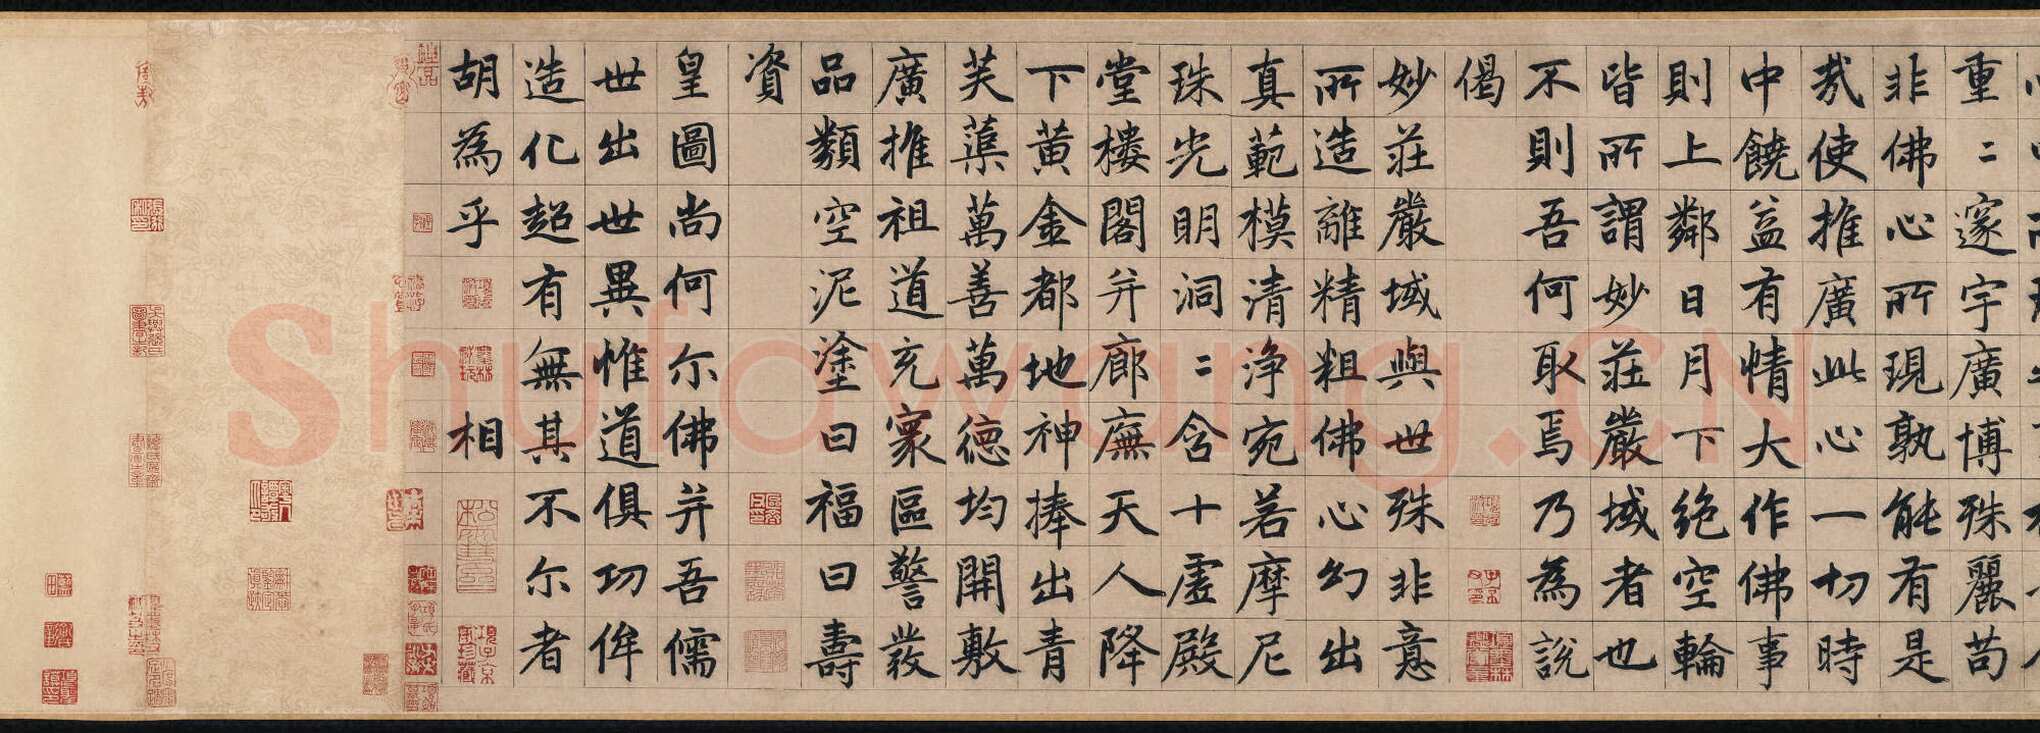 重二邃宇廣博殊麗苟
非佛心所現孰能有是
哉使推廣此心一切時
中饒益有情大作佛事
則上鄰日月下絶空輪
皆所謂妙莊嚴域者也
不則吾何取焉乃為說
偈
妙莊嚴域與世殊非意
所造離精粗佛心幻出
真範模清淨宛若摩尼
珠光明洞二含十虛殿
堂樓閣并廊廡天人降
下黃金都地神捧出青
芙蕖萬善萬德均開敷
廣推祖道充寰區警發
品類空泥塗曰福曰壽
資
皇圖尚何尒佛并吾儒
世出世異惟道俱功侔
造化超有無其不尒者
胡為乎相
Shufawang.CN